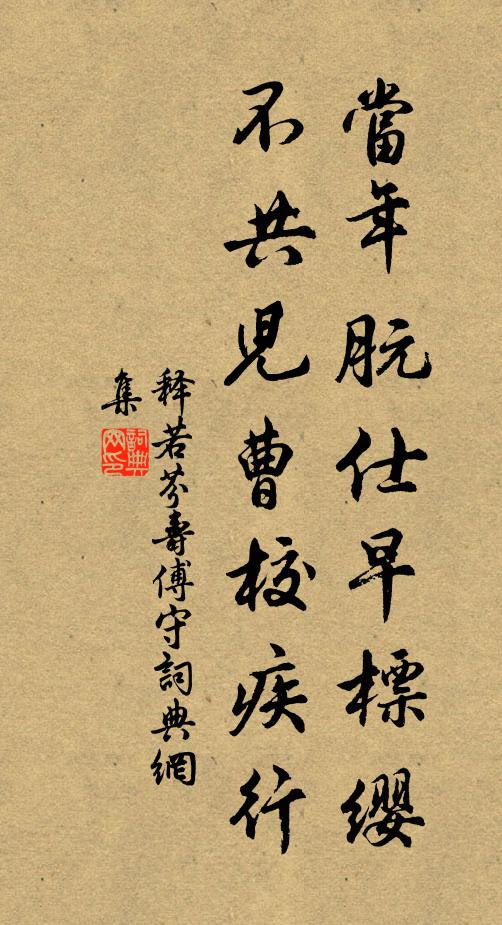 當年朊仕早標纓
不共兒曹校疾行
释若芬壽傅守詞典網
集
詞典网印